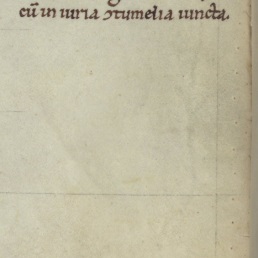 cū in iuria ꝯtumelia iuncta.